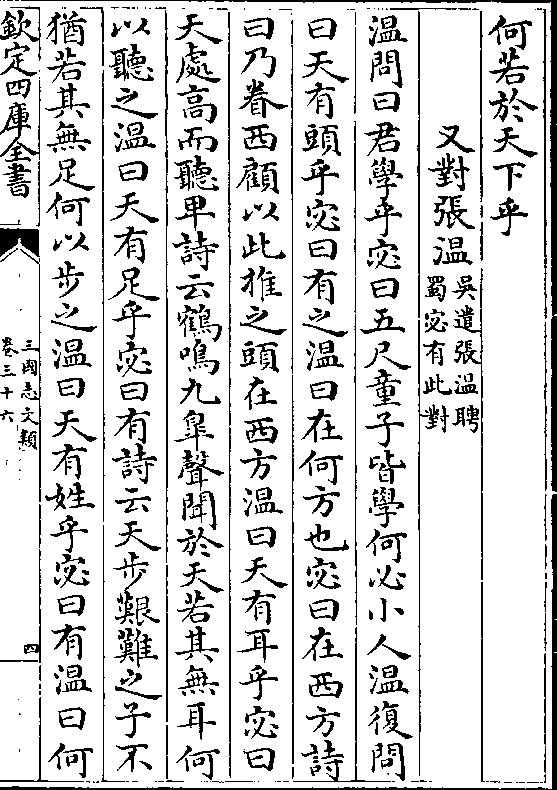 何若於天下乎
又對張温
吳遣張温聘
蜀宓有此對
温問曰君學乎宓曰五尺童子皆學何必小人温復問
曰天有頭乎宓曰有之温曰在何方也宓曰在西方詩
曰乃眷西顧以此推之頭在西方温曰天有耳乎宓曰
天處高而聽卑詩云鶴鳴九臯聲聞於天若其無耳何
以聽之温曰天有足乎宓曰有詩云天步艱難之子不
猶若其無足何以步之温曰天有姓乎宓曰有温曰何
欽定四庫全書
三國志文類
卷三十六
四